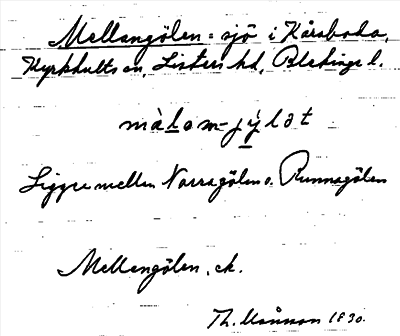 Mellangölen = sjö i Kårsboda,
Kyrkhults sn, Listers hd, Blekinge l.
màlam-jỳlət
Ligger mellan Norragölen o. Runnagölen
Mellangölen, ek.
Th. Månsson 1930.